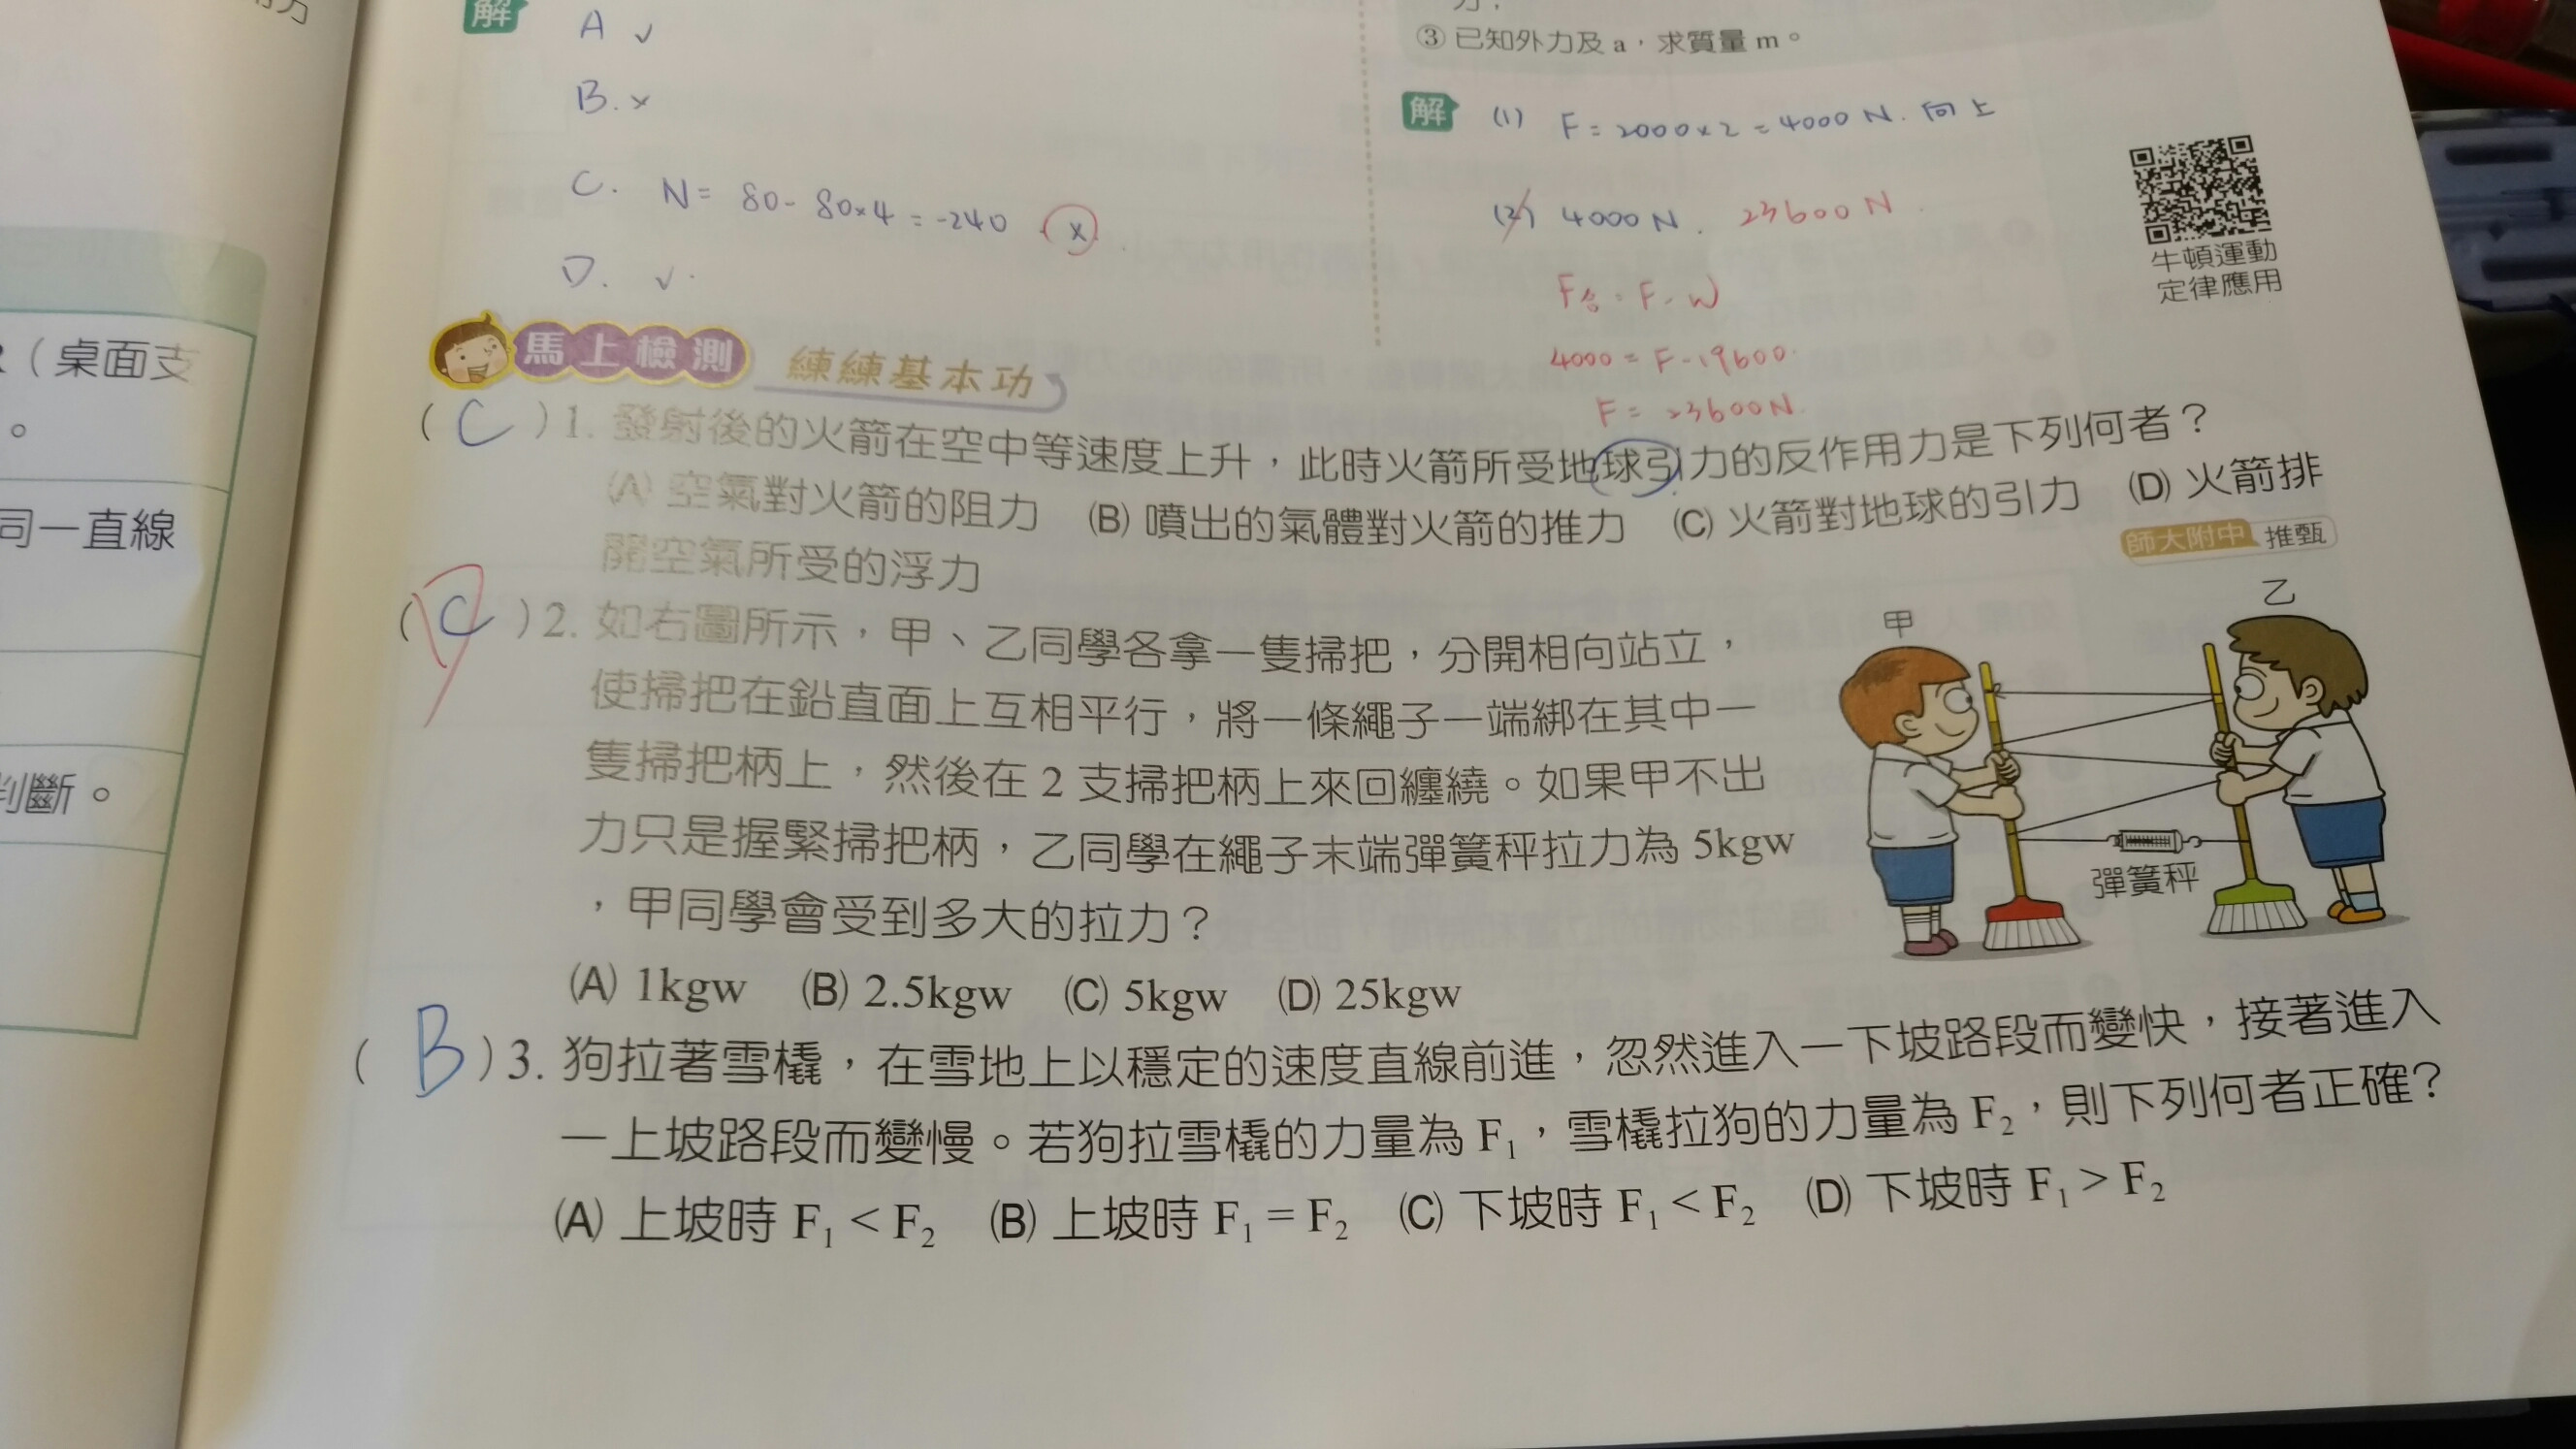 解
A ✓
B. ×
C. N = 80 - 80×4 = -240 ×
D. ✓
③ 已知外力及 a，求質量 m。
解 (1) F = 2000×2 = 4000 N. 向上
(2) 4000 N. 23600 N
F合 = F - W
4000 = F - 19600
F = 23600 N.
牛頓運動
定律應用
（桌面支
。
同一直線
判斷。
馬上檢測 練練基本功
( C ) 1. 發射後的火箭在空中等速度上升，此時火箭所受地球引力的反作用力是下列何者？
(A) 空氣對火箭的阻力 (B) 噴出的氣體對火箭的推力 (C) 火箭對地球的引力 (D) 火箭排
開空氣所受的浮力
師大附中 推甄
( C D ) 2. 如右圖所示，甲、乙同學各拿一隻掃把，分開相向站立，
使掃把在鉛直面上互相平行，將一條繩子一端綁在其中一
隻掃把柄上，然後在 2 支掃把柄上來回纏繞。如果甲不出
力只是握緊掃把柄，乙同學在繩子末端彈簧秤拉力為 5kgw
，甲同學會受到多大的拉力？
(A) 1kgw (B) 2.5kgw (C) 5kgw (D) 25kgw
甲
乙
彈簧秤
( B ) 3. 狗拉著雪橇，在雪地上以穩定的速度直線前進，忽然進入一下坡路段而變快，接著進入
一上坡路段而變慢。若狗拉雪橇的力量為 F₁，雪橇拉狗的力量為 F₂，則下列何者正確？
(A) 上坡時 F₁ < F₂ (B) 上坡時 F₁ = F₂ (C) 下坡時 F₁ < F₂ (D) 下坡時 F₁ > F₂